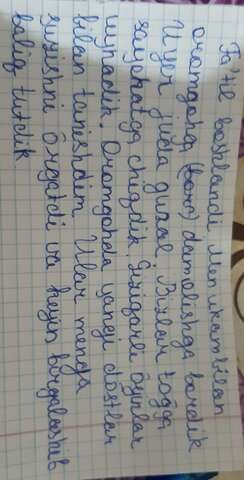 Ta'til boshlandi Men ukam bilan
oromgohga (lager) damolishga bordik
U yer juda guzal Bizlar toğga
sayohatga chiqdik. Qiziqarli öyinlar
uynadik. Oromgohda yangi döstlar
bilan tanishdim Ular menga
suzishni örgatdi va keyin birgalashib
baliq tutdik.